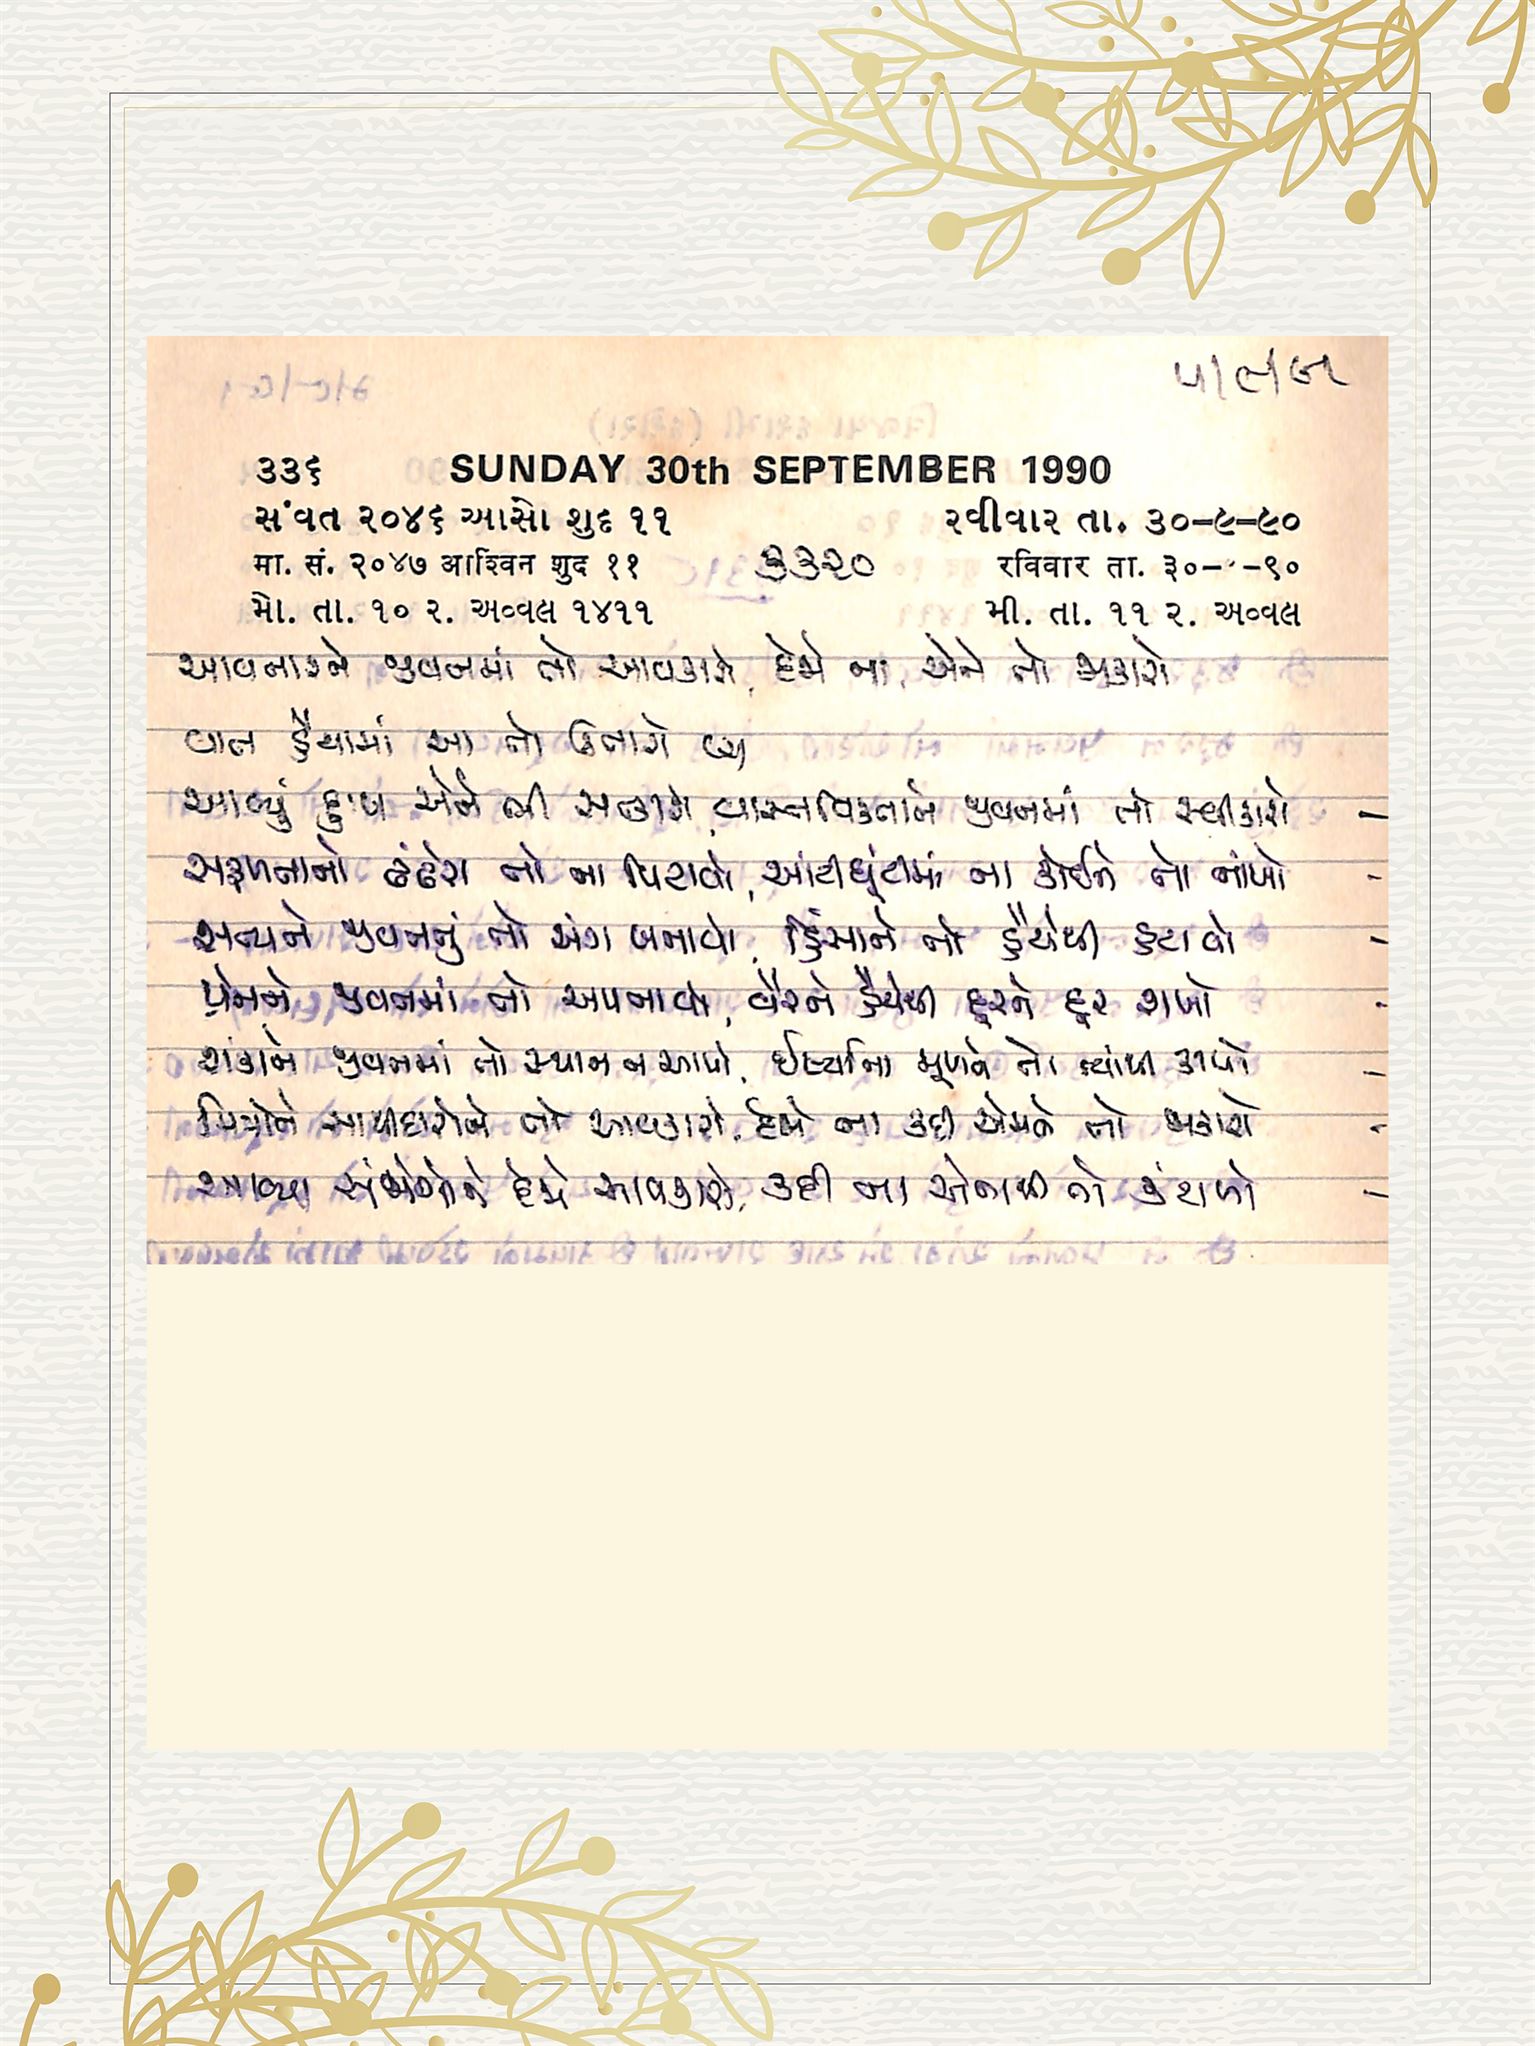 ૫/૮/૯૧
૩૩૬ SUNDAY 30th SEPTEMBER 1990
સંવત ૨૦૪૬ આસો શુદ ૧૧ રવીવાર તા. ૩૦-૯-૯૦
मा. सं. २०४७ आश्विन शुद ११ ૩૩૨૦ रविवार ता. ३०- -९०
મો. તા. ૧૦ ૨. અવ્વલ ૧૪૧૧ મી. તા. ૧૧ ૨. અવ્વલ
આવનારને જીવનમાં તો આવકારો, દેજો ના, એને તો જાકારો
વાત હૈયામાં આ તો ઉતારો
આવ્યું દુઃખ એને ભી સત્કારો, વાસ્તવિક્તાને જીવનમાં તો સ્વીકારો -
સફળતાનો ઢંઢેરો તો ના પિટાવો, આંટીઘૂંટીમાં ના કોઈને તો નાંખો -
સત્યને જીવનનું તો અંગ બનાવો, હિંસાને તો હૈયેથી હટાવો -
પ્રેમને જીવનમાં તો અપનાવો, વૈરને હૈયેથી દૂરને દૂર રાખો -
શંકાને જીવનમાં તો સ્થાન ન આપો, ઈર્ષ્યાના મૂળને તો ત્યાંથી કાપો -
મિત્રોને સાથીદારોને તો આવકારો, દેજો ના કદી એમને તો જાકારો -
આવ્યા સંજોગોને દેજો આવકારો, કદી ના એનાથી તો કંટાળો -